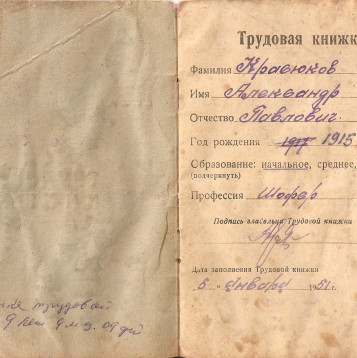 трудовой
9 лет 9 м-з. 09 дн
Трудовая книжк
Фамилия Красюков
Имя Александр
Отчество Павлович.
Год рождения 1917 1915
Образование: начальное, среднее,
(подчеркнуть)
Профессия Шофер
Подпись владельца Трудовой книжки
Дата заполнения Трудовой книжки
5 " Января 1951 г